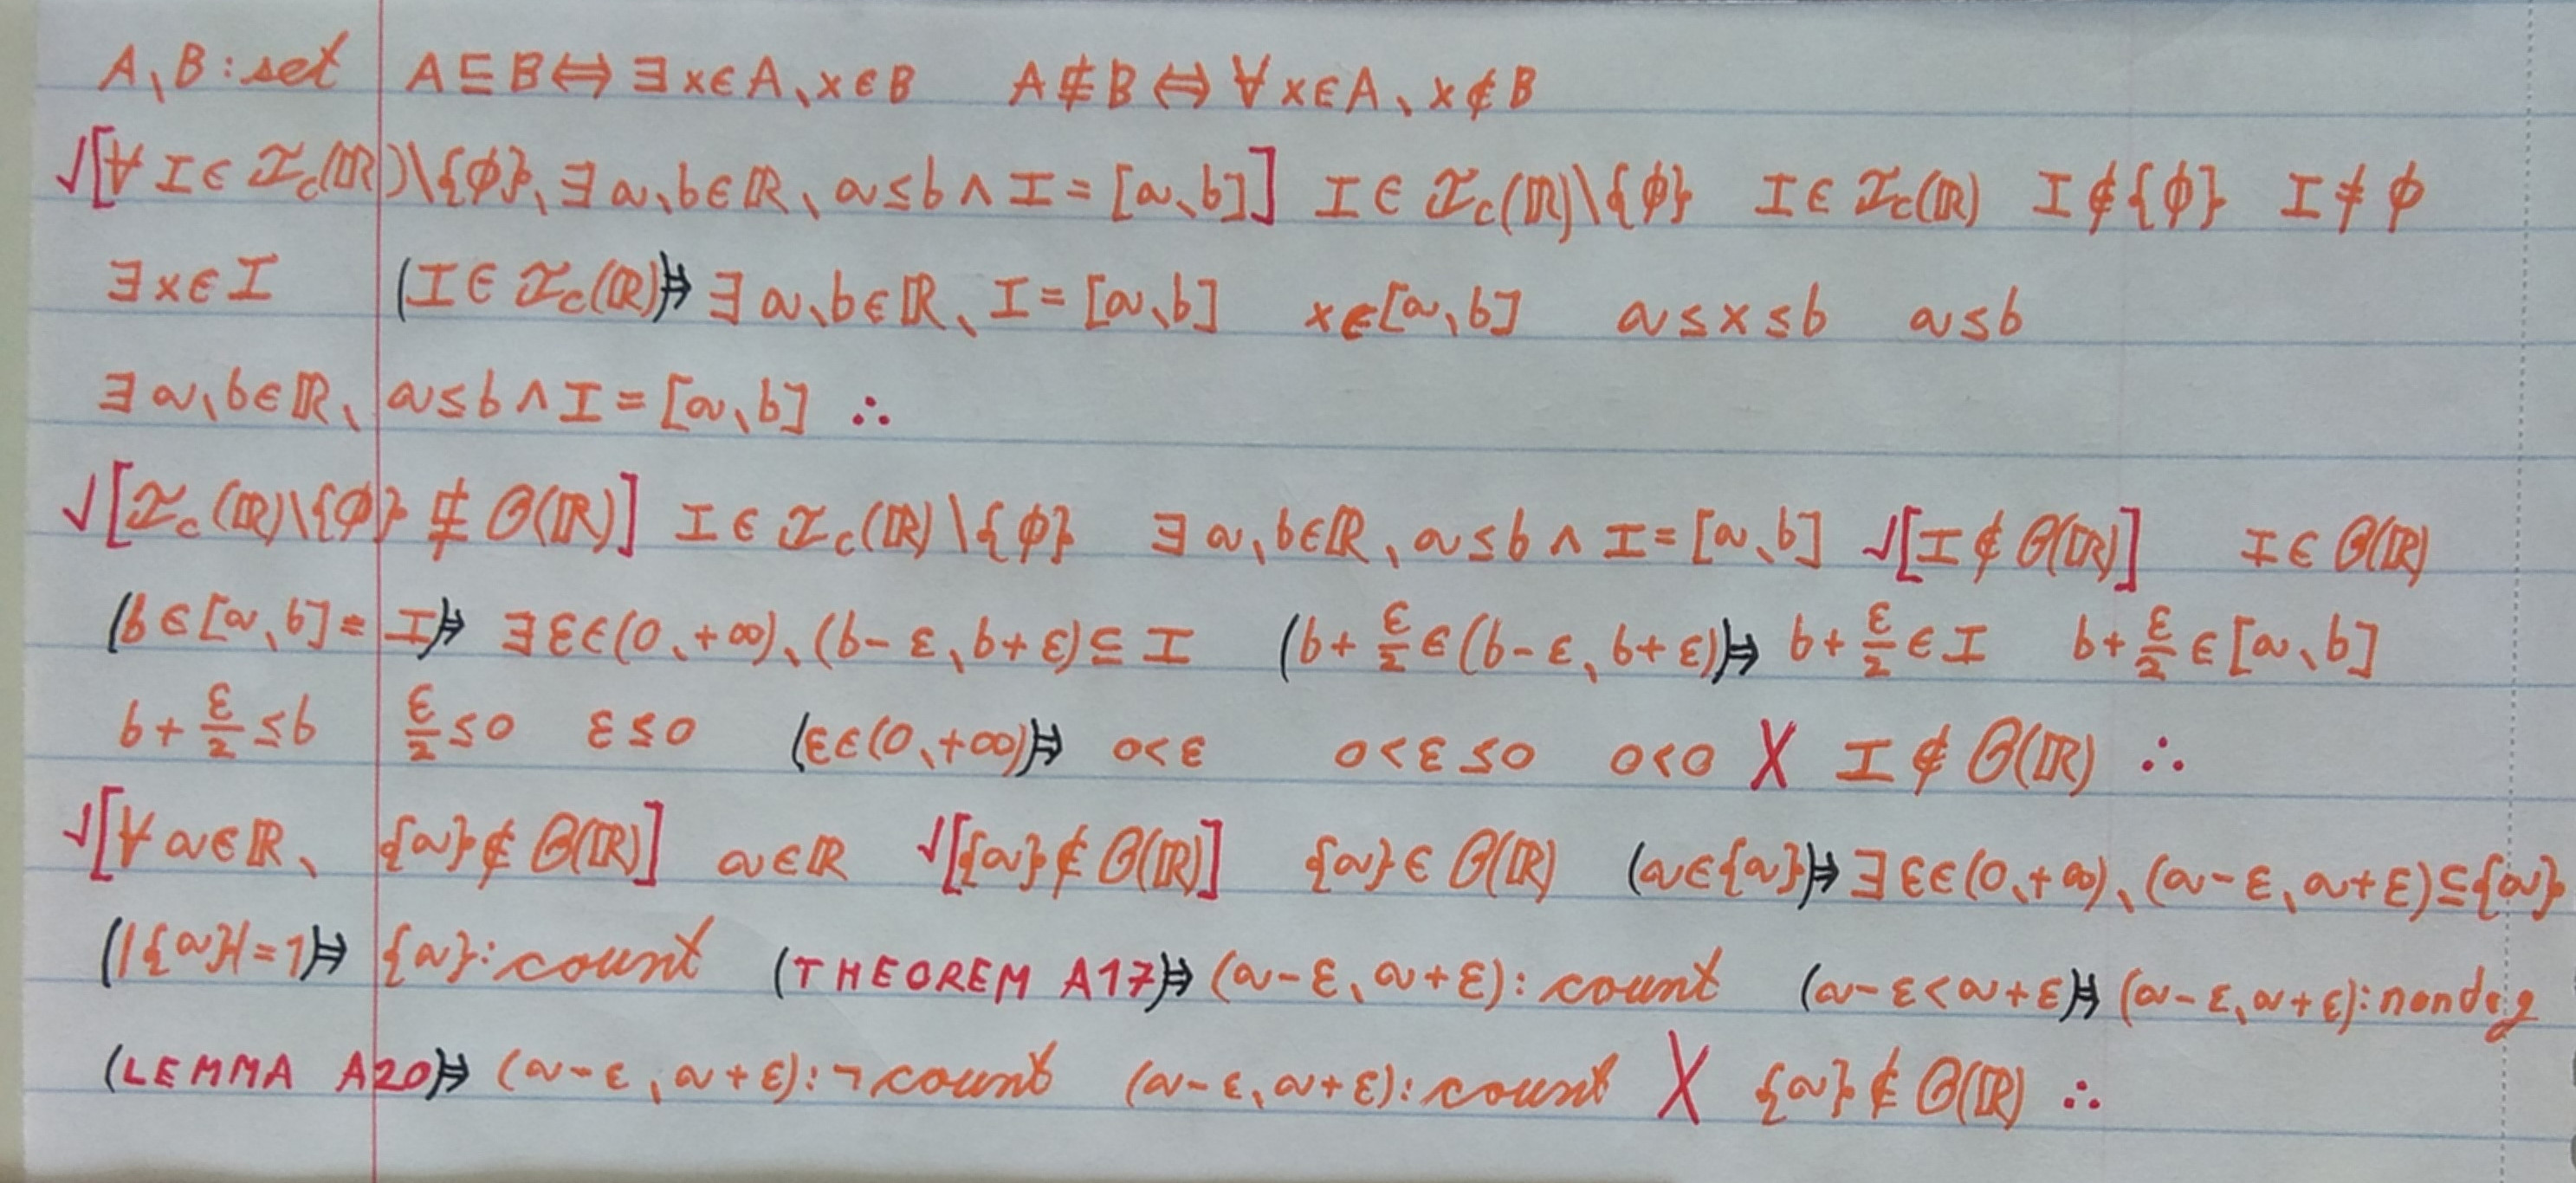 A、B : set A ⊑ B ⇔ ∃ x ∈ A、x ∈ B A ⋢ B ⇔ ∀ x ∈ A、x ∉ B
√[∀ I ∈ 𝓘c(ℝ)\{ϕ}、∃ a、b ∈ ℝ、a ≤ b ∧ I = [a、b]] I ∈ 𝓘c(ℝ)\{ϕ} I ∈ 𝓘c(ℝ) I ∉ {ϕ} I ≠ ϕ
∃ x ∈ I (I ∈ 𝓘c(ℝ))⇒ ∃ a、b ∈ ℝ、I = [a、b] x ∈ [a、b] a ≤ x ≤ b a ≤ b
∃ a、b ∈ ℝ、a ≤ b ∧ I = [a、b] ∴
√[𝓘c(ℝ)\{ϕ} ⋢ 𝒪(ℝ)] I ∈ 𝓘c(ℝ)\{ϕ} ∃ a、b ∈ ℝ、a ≤ b ∧ I = [a、b] √[I ∉ 𝒪(ℝ)] I ∈ 𝒪(ℝ)
(b ∈ [a、b] = I)⇒ ∃ ε ∈ (0、+∞)、(b − ε、b + ε) ⊆ I (b + ε/2 ∈ (b − ε、b + ε))⇒ b + ε/2 ∈ I b + ε/2 ∈ [a、b]
b + ε/2 ≤ b ε/2 ≤ 0 ε ≤ 0 (ε ∈ (0、+∞))⇒ 0 < ε 0 < ε ≤ 0 0 < 0 X I ∉ 𝒪(ℝ) ∴
√[∀ a ∈ ℝ、{a} ∉ 𝒪(ℝ)] a ∈ ℝ √[{a} ∉ 𝒪(ℝ)] {a} ∈ 𝒪(ℝ) (a ∈ {a})⇒ ∃ ε ∈ (0、+∞)、(a − ε、a + ε) ⊆ {a}
(|{a}| = 1)⇒ {a} : count (THEOREM A17)⇒ (a − ε、a + ε) : count (a − ε < a + ε)⇒ (a − ε、a + ε) : nondeg
(LEMMA A20)⇒ (a − ε、a + ε) : ¬ count (a − ε、a + ε) : count X {a} ∉ 𝒪(ℝ) ∴